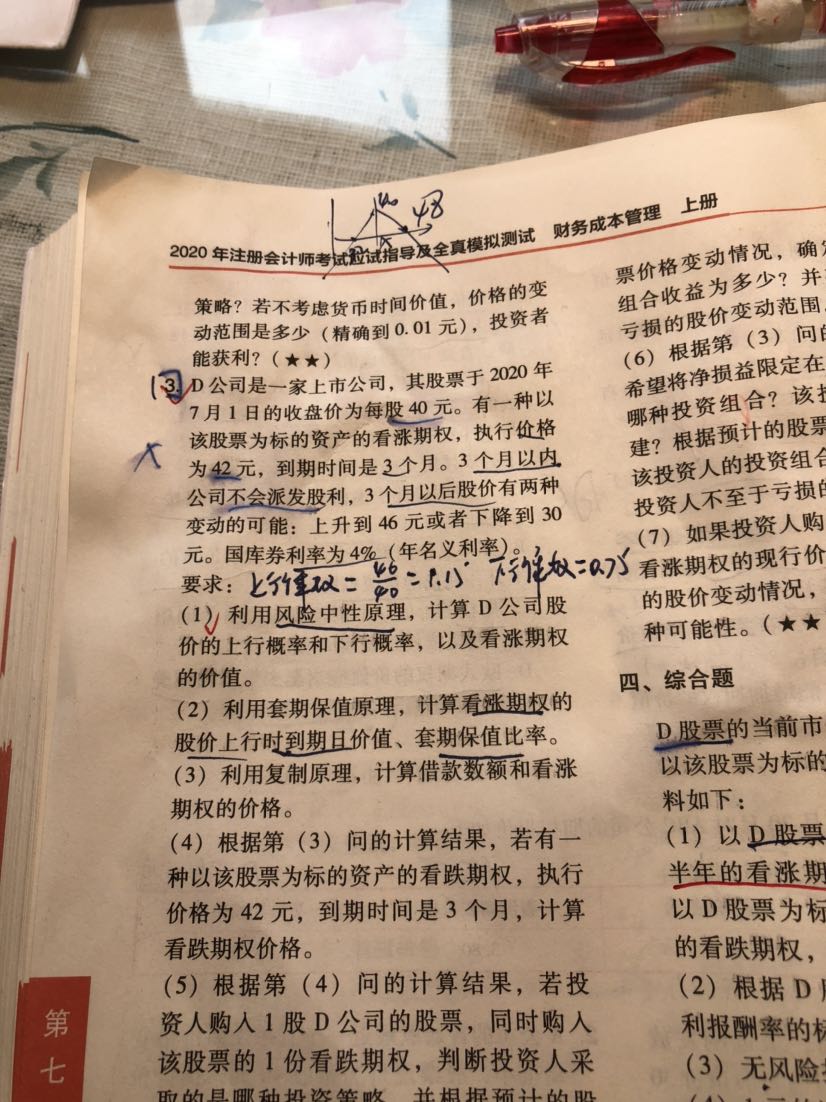 48
2020年注册会计师考试应试指导及全真模拟测试 财务成本管理 上册
策略？若不考虑货币时间价值，价格的变
动范围是多少（精确到0.01元），投资者
能获利？（★★）
3. D公司是一家上市公司，其股票于2020年
7月1日的收盘价为每股40元。有一种以
该股票为标的资产的看涨期权，执行价格
为42元，到期时间是3个月。3个月以内
公司不会派发股利，3个月以后股价有两种
变动的可能：上升到46元或者下降到30
元。国库券利率为4%（年名义利率）。
要求： = 46/40 = 1.15 =0.75
（1）利用风险中性原理，计算D公司股
价的上行概率和下行概率，以及看涨期权
的价值。
（2）利用套期保值原理，计算看涨期权的
股价上行时到期日价值、套期保值比率。
（3）利用复制原理，计算借款数额和看涨
期权的价格。
（4）根据第（3）问的计算结果，若有一
种以该股票为标的资产的看跌期权，执行
价格为42元，到期时间是3个月，计算
看跌期权价格。
（5）根据第（4）问的计算结果，若投
资人购入1股D公司的股票，同时购入
该股票的1份看跌期权，判断投资人采
取的是哪种投资策略，并根据预计的股
票价格变动情况，确
组合收益为多少？并
亏损的股价变动范围
（6）根据第（3）问
希望将净损益限定在
哪种投资组合？该投
建？根据预计的股票
该投资人的投资组合
投资人不至于亏损的
（7）如果投资人购
看涨期权的现行价
的股价变动情况，
种可能性。（★★
四、综合题
D股票的当前市
以该股票为标的
料如下：
（1）以D股票
半年的看涨期
以D股票为标
的看跌期权，
（2）根据D
利报酬率的标
（3）无风险
第
七